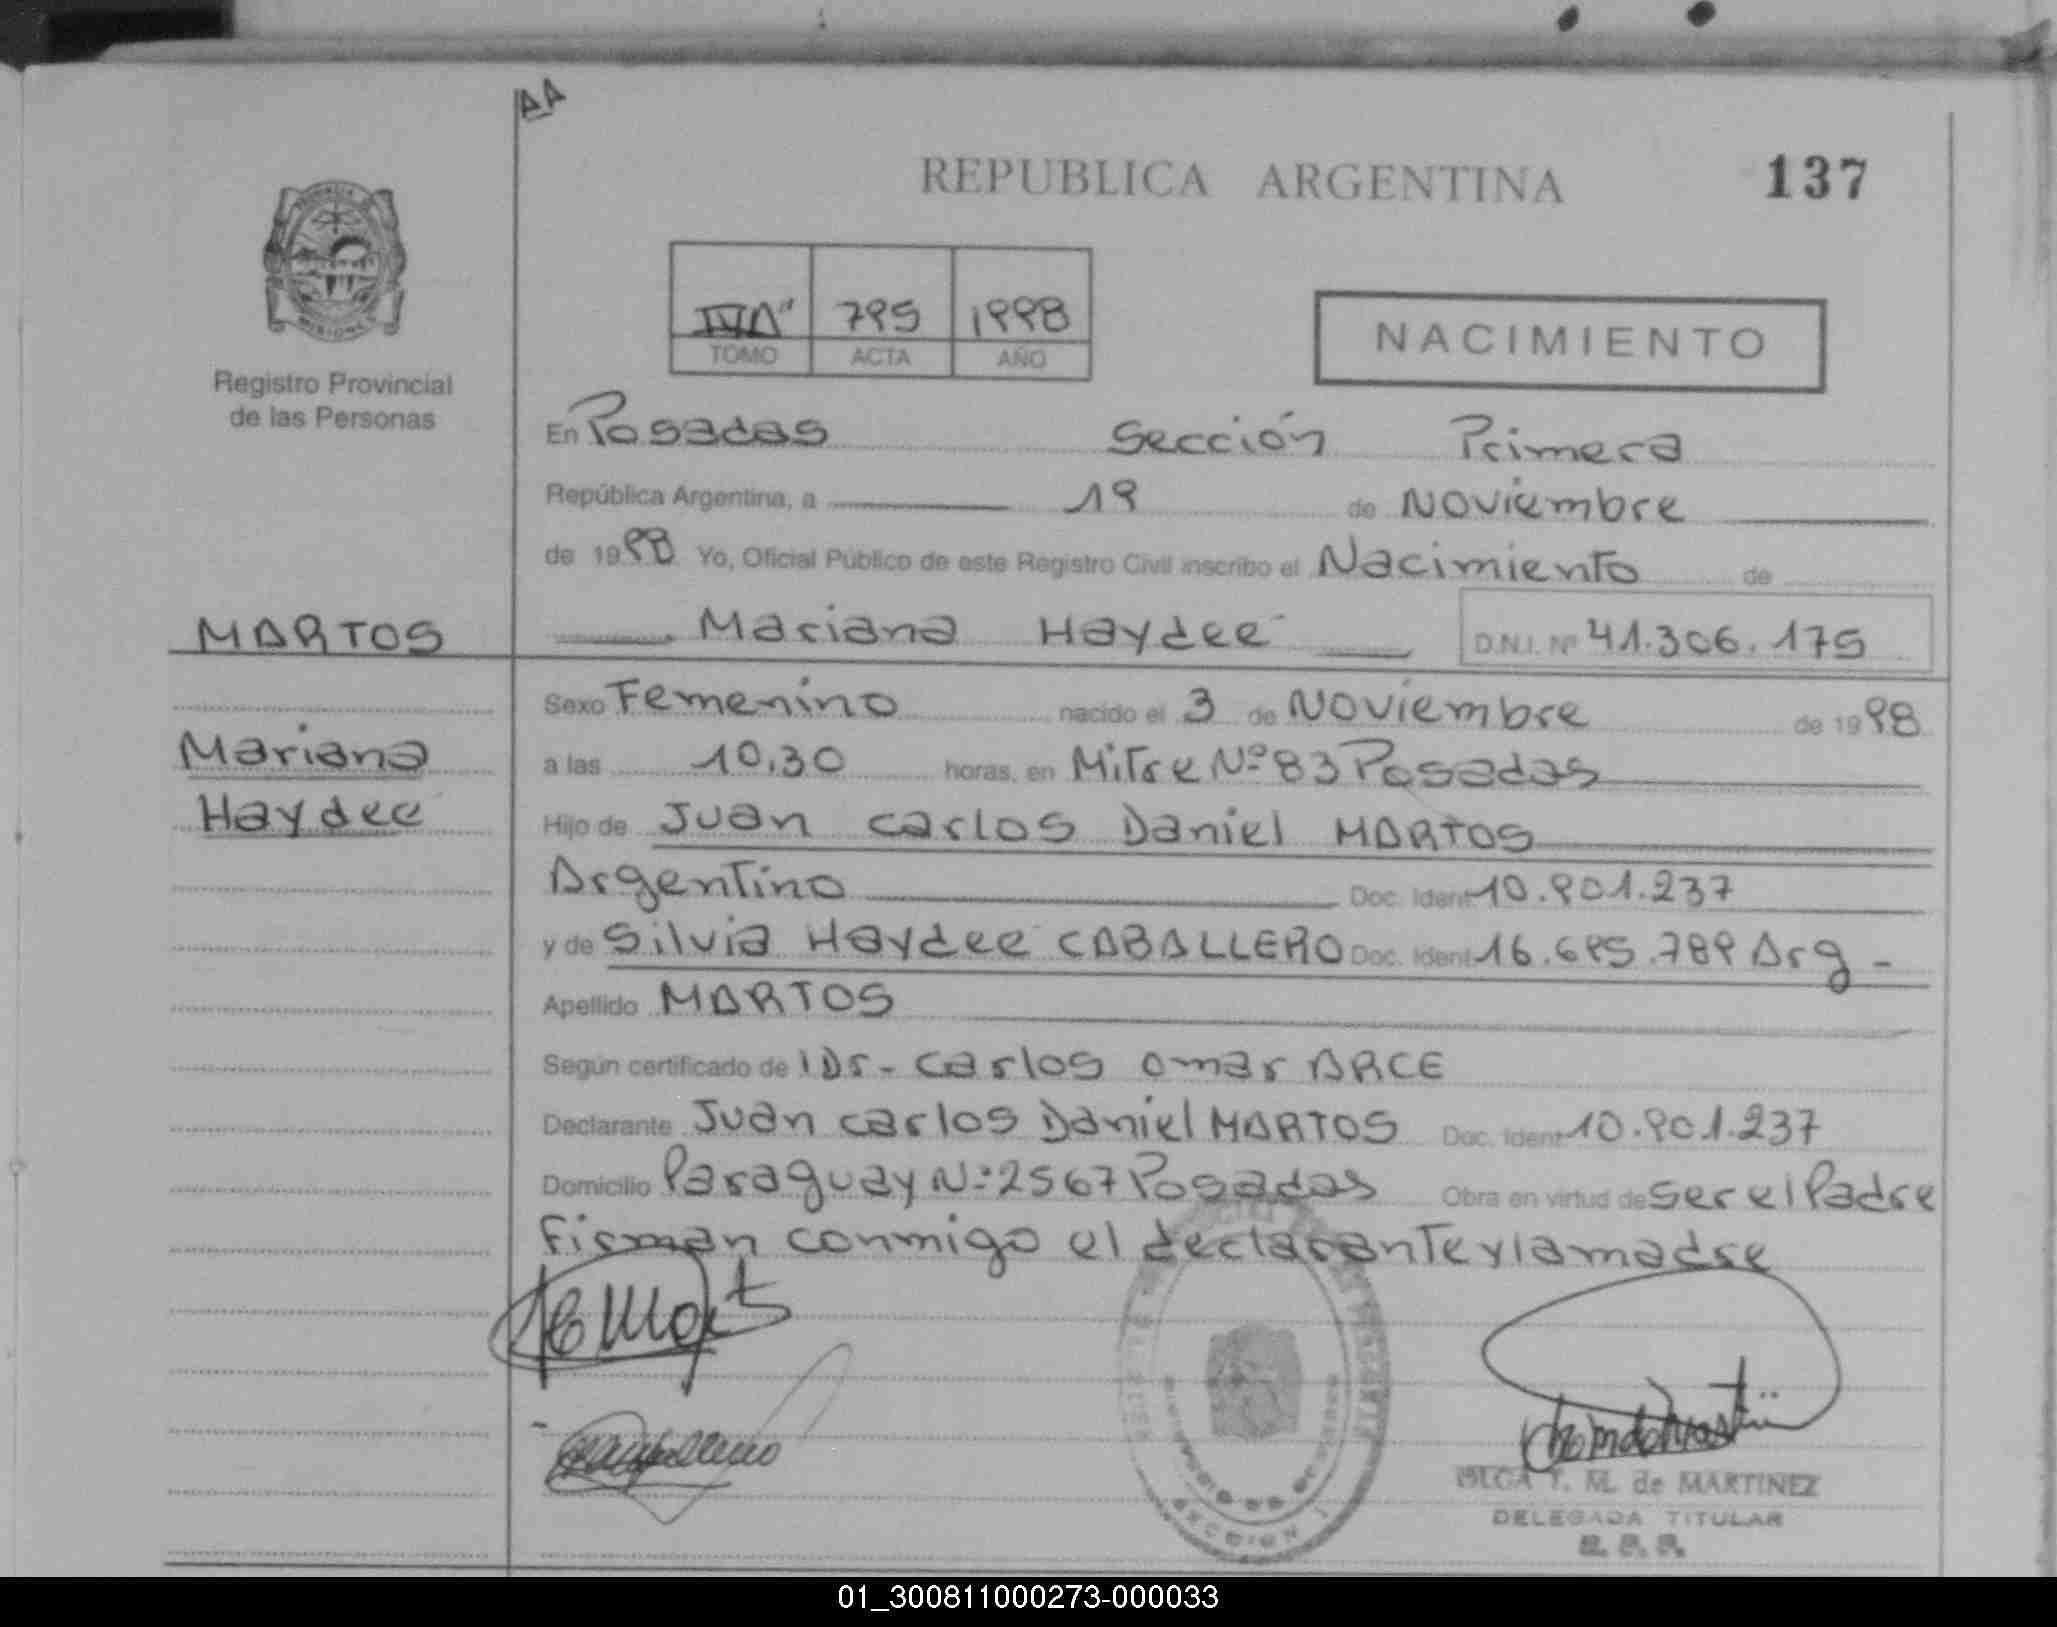 AA
REPUBLICA ARGENTINA 137
MISIONES
Registro Provincial
de las Personas
795 1998
TOMO ACTA AÑO
NACIMIENTO
En Posadas Sección Primera
República Argentina, a 19 de Noviembre
de 1998 Yo, Oficial Público de este Registro Civil inscribo el Nacimiento de
MARTOS Mariana Haydee D.N.I. Nº 41.306.175
Sexo Femenino nacido el 3 de Noviembre de 1998
Mariana
a las 10,30 horas, en Mitre Nº 83 Posadas
Haydee
Hijo de Juan Carlos Daniel MARTOS
Argentino Doc. Ident 10.901.237
y de Silvia Haydee CABALLERO Doc. Ident 16.695.789 Arg -
Apellido MARTOS
Según certificado de Dr- Carlos Omar ARCE
Declarante Juan Carlos Daniel MARTOS Doc. Ident 10.901.237
Domicilio Paraguay Nº 2567 Posadas Obra en virtud de ser el Padre
Firman conmigo el declarante y la madre
OLGA T. M. de MARTINEZ
DELEGADA TITULAR
SECCION 1
01_300811000273-000033